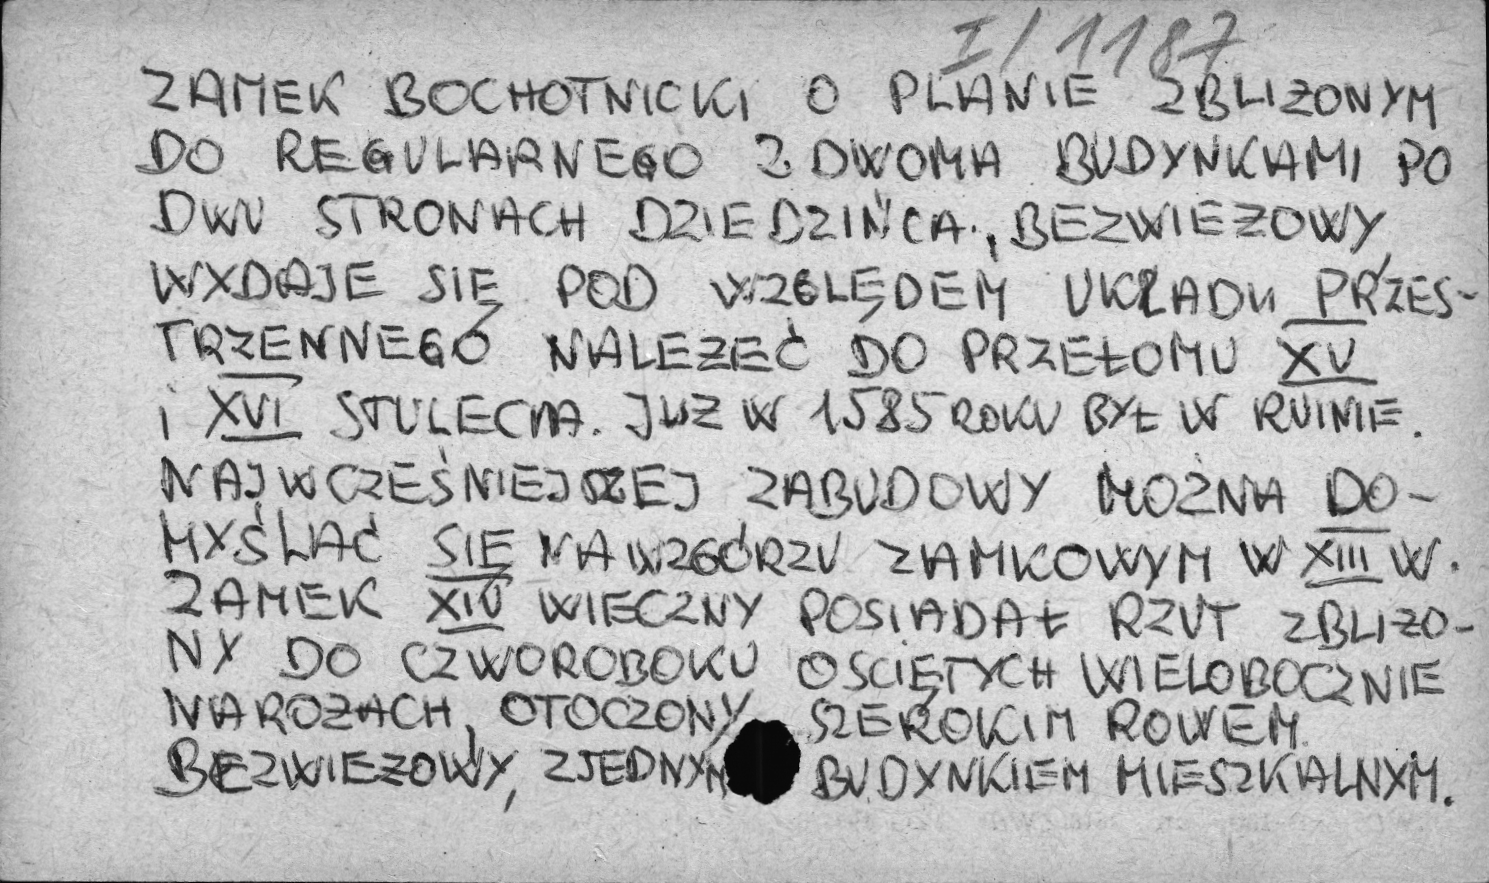 I/1187
ZAMEK BOCHOTNICKI O PLANIE ZBLIŻONYM
DO REGULARNEGO Z DWOMA BUDYNKAMI PO
DWU STRONACH DZIEDZIŃCA., BEZWIEŻOWY,
WYDAJE SIĘ POD WZGLĘDEM UKŁADU PRZES-
TRZENNEGO NALEŻEĆ DO PRZEŁOMU XV
i XVI STULECIA. JUŻ W 1585 ROKU BYŁ W RUINIE.
NAJWCZEŚNIEJSZEJ ZABUDOWY MOŻNA DO-
MYŚLAĆ SIĘ NA WZGÓRZU ZAMKOWYM W XIII W.
ZAMEK XIV WIECZNY POSIADAŁ RZUT ZBLIŻO-
NY DO CZWOROBOKU O ŚCIĘTYCH WIELOBOCZNIE
NAROŻACH, OTOCZONY SZEROKIM ROWEM.
BEZWIEŻOWY, Z JEDNYM BUDYNKIEM MIESZKALNYM.